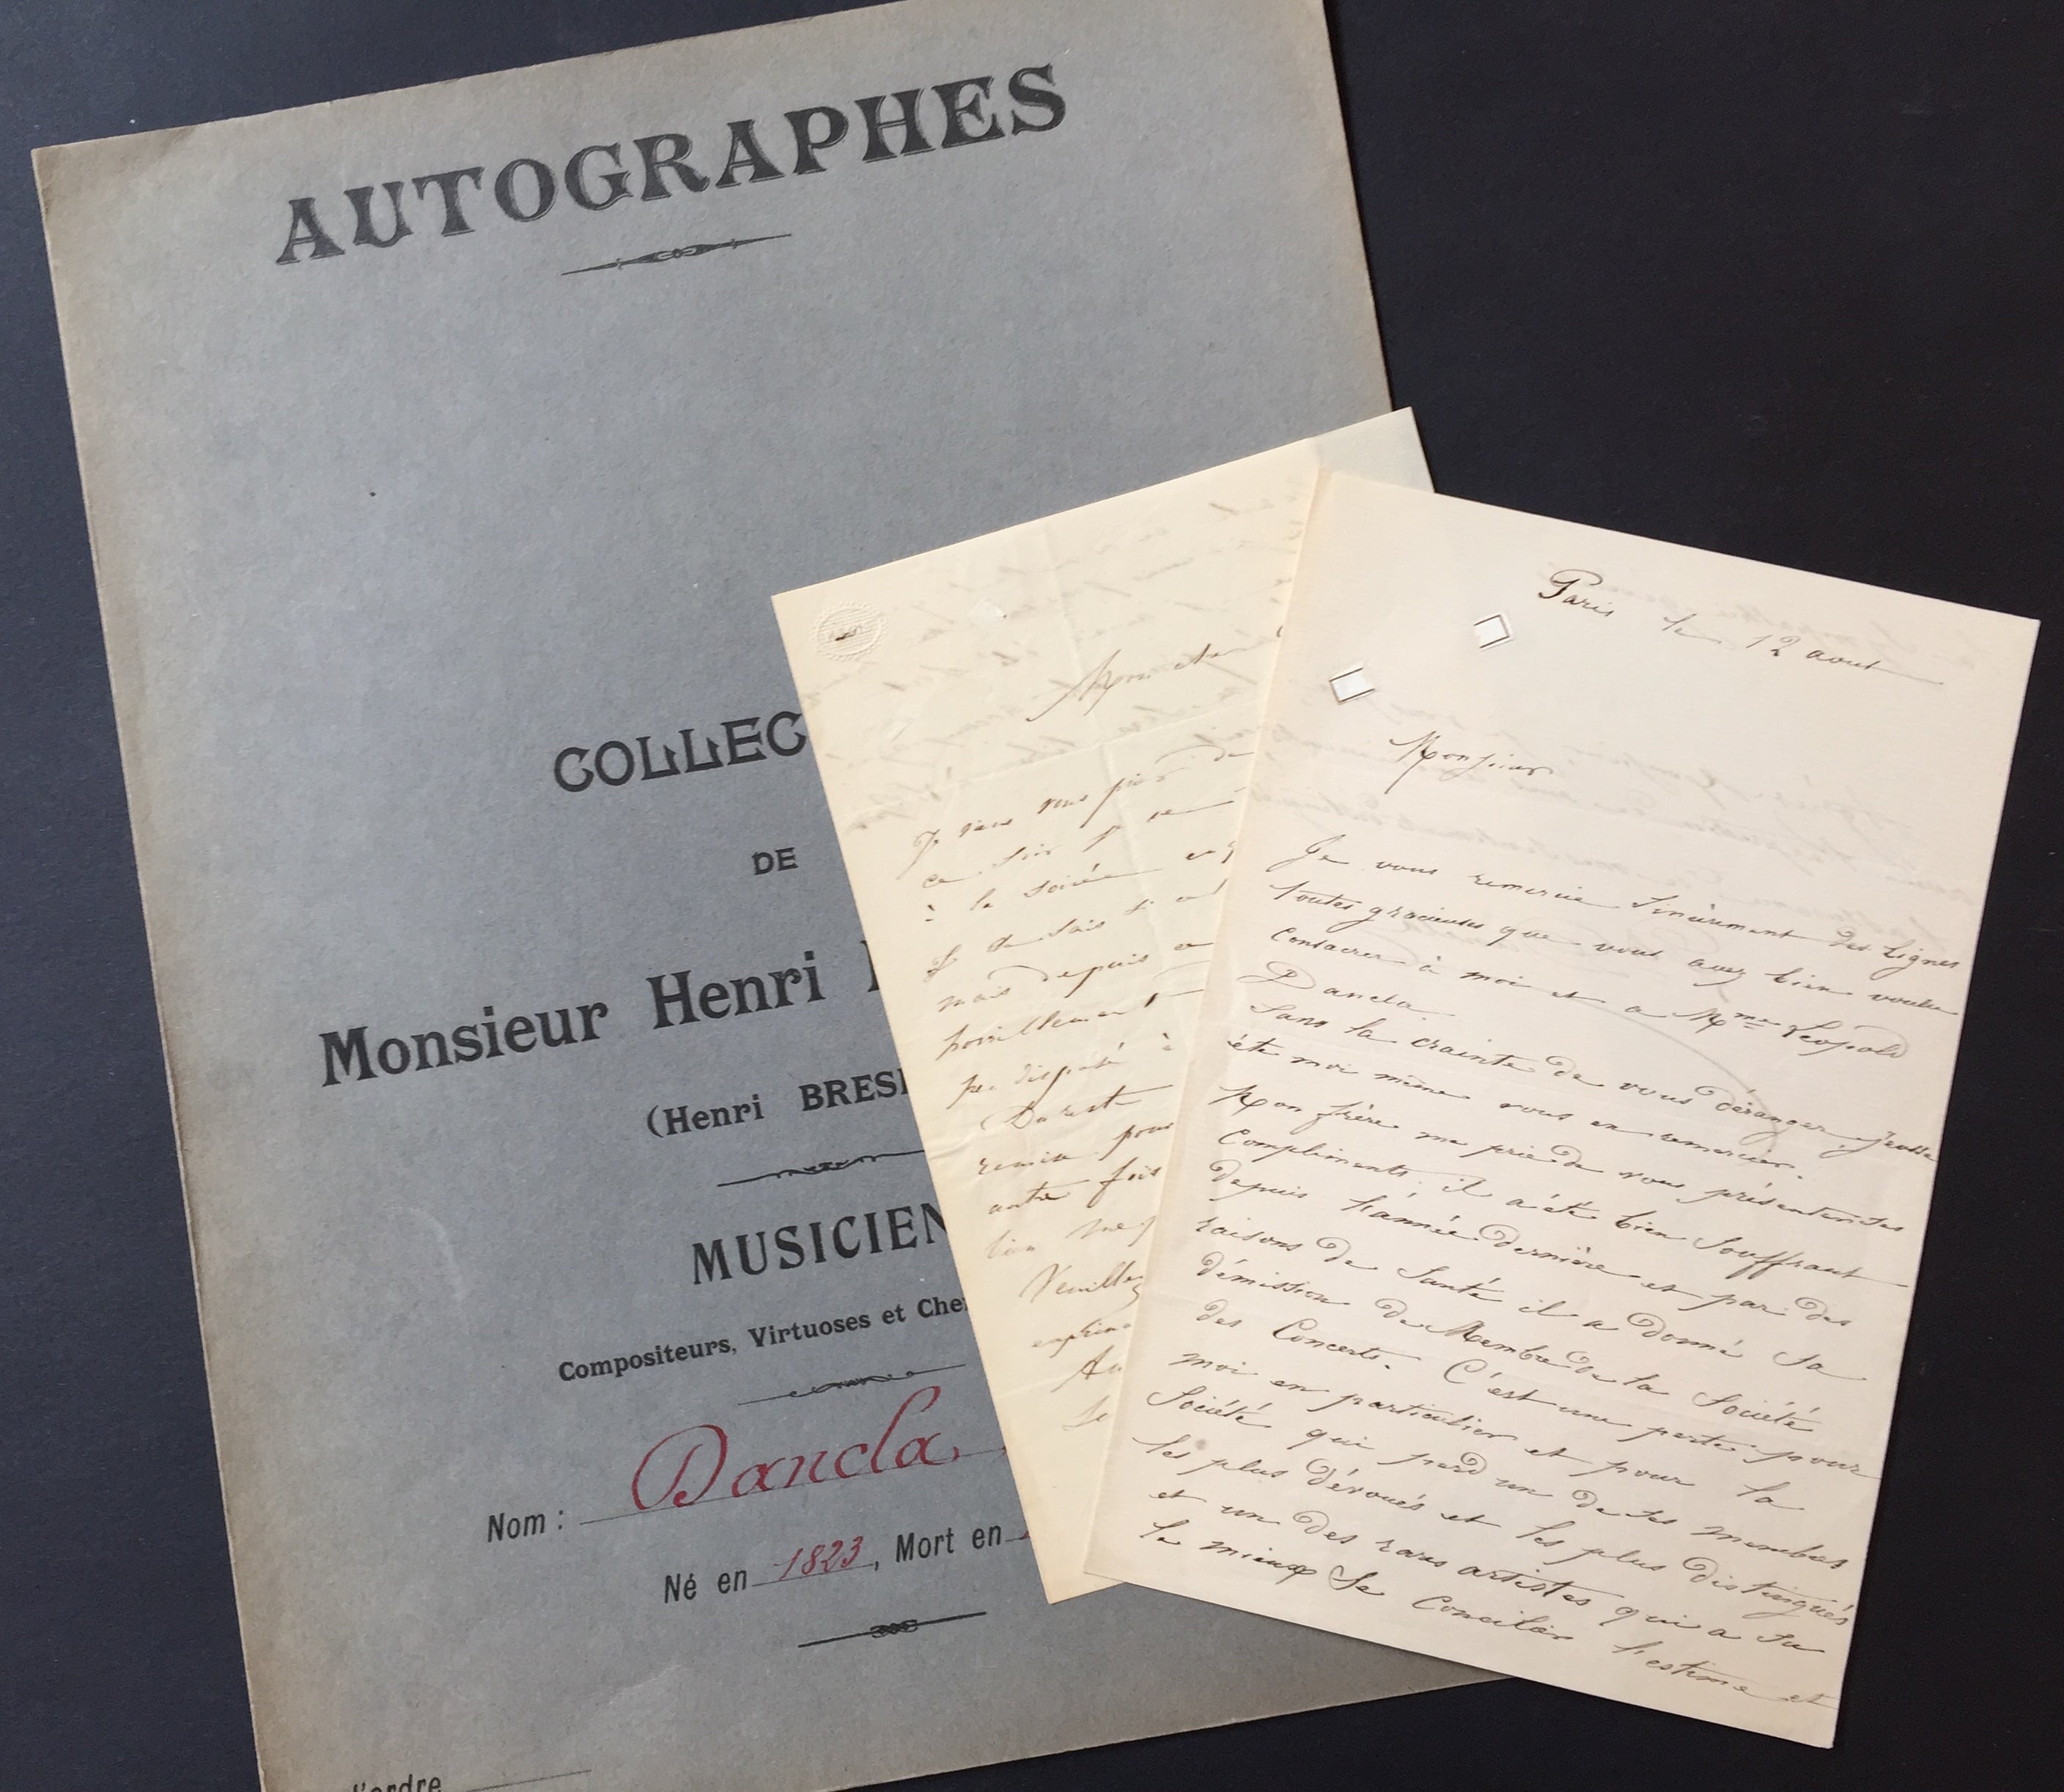 AUTOGRAPHES
COLLEC
DE
Monsieur Henri
(Henri BRES
MUSICIEN
Compositeurs, Virtuoses et Che
Nom : Dancla
Né en 1823, Mort en
l'ordre
Je viens vous prier de
ce soir
à la soirée
mais depuis
disposé à
pour
autre fois
bien
Veuillez
Paris le 12 aout
Monsieur
Je vous remercie sincèrement des lignes
toutes gracieuses que vous avez bien voulu
consacrer à moi et a Mme Léopold
Dancla.
Sans la crainte de vous déranger j'eusse
été moi même vous en remercier.
Mon frère me prie de vous présenter ses
compliments. il a été bien souffrant
depuis l'année dernière et par des
raisons de santé il a donné sa
démission de Membre de la Société
des Concerts. C'est une perte pour
moi en particulier et pour la
Société qui perd un de ses membres
les plus dévoués et les plus distingués
et un des rares artistes qui a su
le mieux se concilier l'estime et